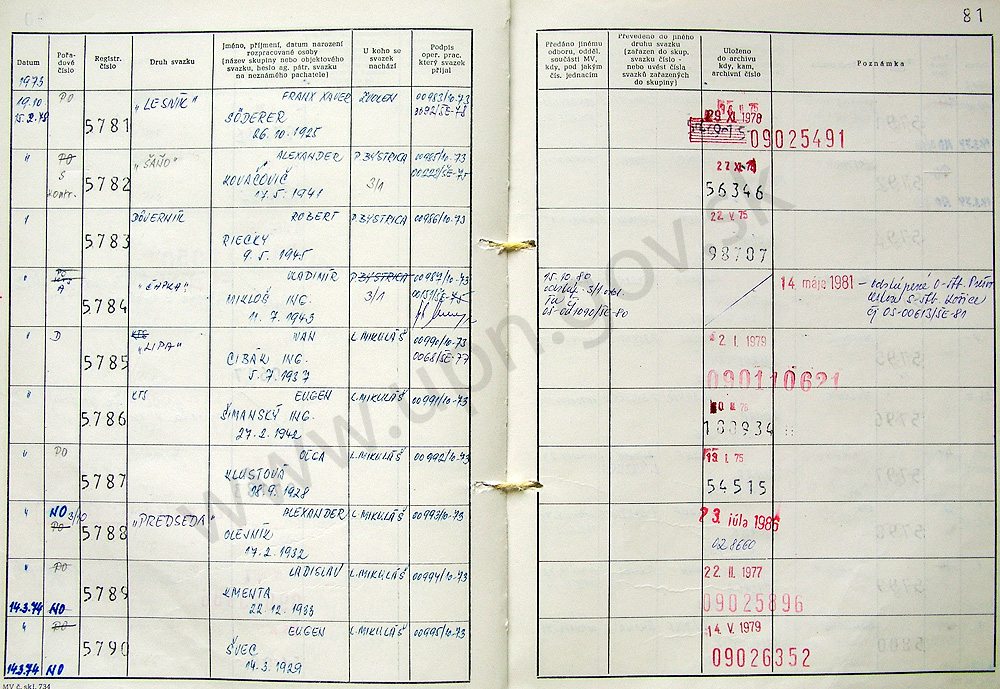 81
Datum
Pořa-
dové
číslo
Registr.
číslo
Druh svazku
Jméno, příjmení, datum narození
rozpracované osoby
(název skupiny nebo objektového
svazku, heslo ag. pátr. svazku
na neznámého pachatele)
U koho se
svazek
nachází
Podpis
oper. prac.
který svazek
přijal
Předáno jinému
odboru, odděl.
součásti MV,
kdy, pod jakým
čís. jednacím
Převedeno do jiného
druhu svazku
(zařazen do skup.
svazku číslo -
nebo uvést čísla
svazků zařazených
do skupiny)
Uloženo
do archivu
kdy, kam,
archivní číslo
Poznámka
1973
19.10 PO 5781 „LESNÍK" FRANX XAVER ZVOLEN 00983/10-73
15.2.78
SÖDERER
26.10.1925
29 XI. 1978
09025491
" PO 5782 „ŠAŇO" ALEXANDER P. BYSTRICA 00985/10-73
S
kontr.
KOVÁČOVIČ 3/1
17.5.1941
56346
5783 DÔVERNÍK ROBERT P. BYSTRICA 00986/10-73
RIECKY
9.5.1945
22. V. 75
98707
" A 5784 VLADIMÍR P. BYSTRICA 00987/10-73
MIKLOŠ ING. 3/1
11.7.1943
15.10.80
14. máje 1981
ČJ OS-00613/SE-81
" D 5785 KTS „LIPA" IVAN L. MIKULÁŠ 00990/10-73
CIBÁK ING.
5.7.1937
2. I. 1979
090110621
" 5786 KTS EUGEN L. MIKULÁŠ 00991/10-73
ŠIMANSKÝ ING.
27.2.1942
100934
" PO 5787 OĽGA L. MIKULÁŠ 00992/10-73
KLUSTOVÁ
18.9.1928
I. 75
54515
" NO 3/10 PO 5788 „PREDSEDA" ALEXANDER L. MIKULÁŠ 00993/10-73
OLEJNÍK
17.2.1932
23. júla 1986
028660
" PO 5789 LADISLAV L. MIKULÁŠ 00994/10-73
KMENTA
14.3.74 NO 22.12.1933
22. II. 1977
09025896
" PO 5790 EUGEN L. MIKULÁŠ 00995/10-73
ŠVEC
14.3.74 NO 14.3.1929
14. V. 1979
09026352
MV č. skl. 734
www.upn.gov.sk